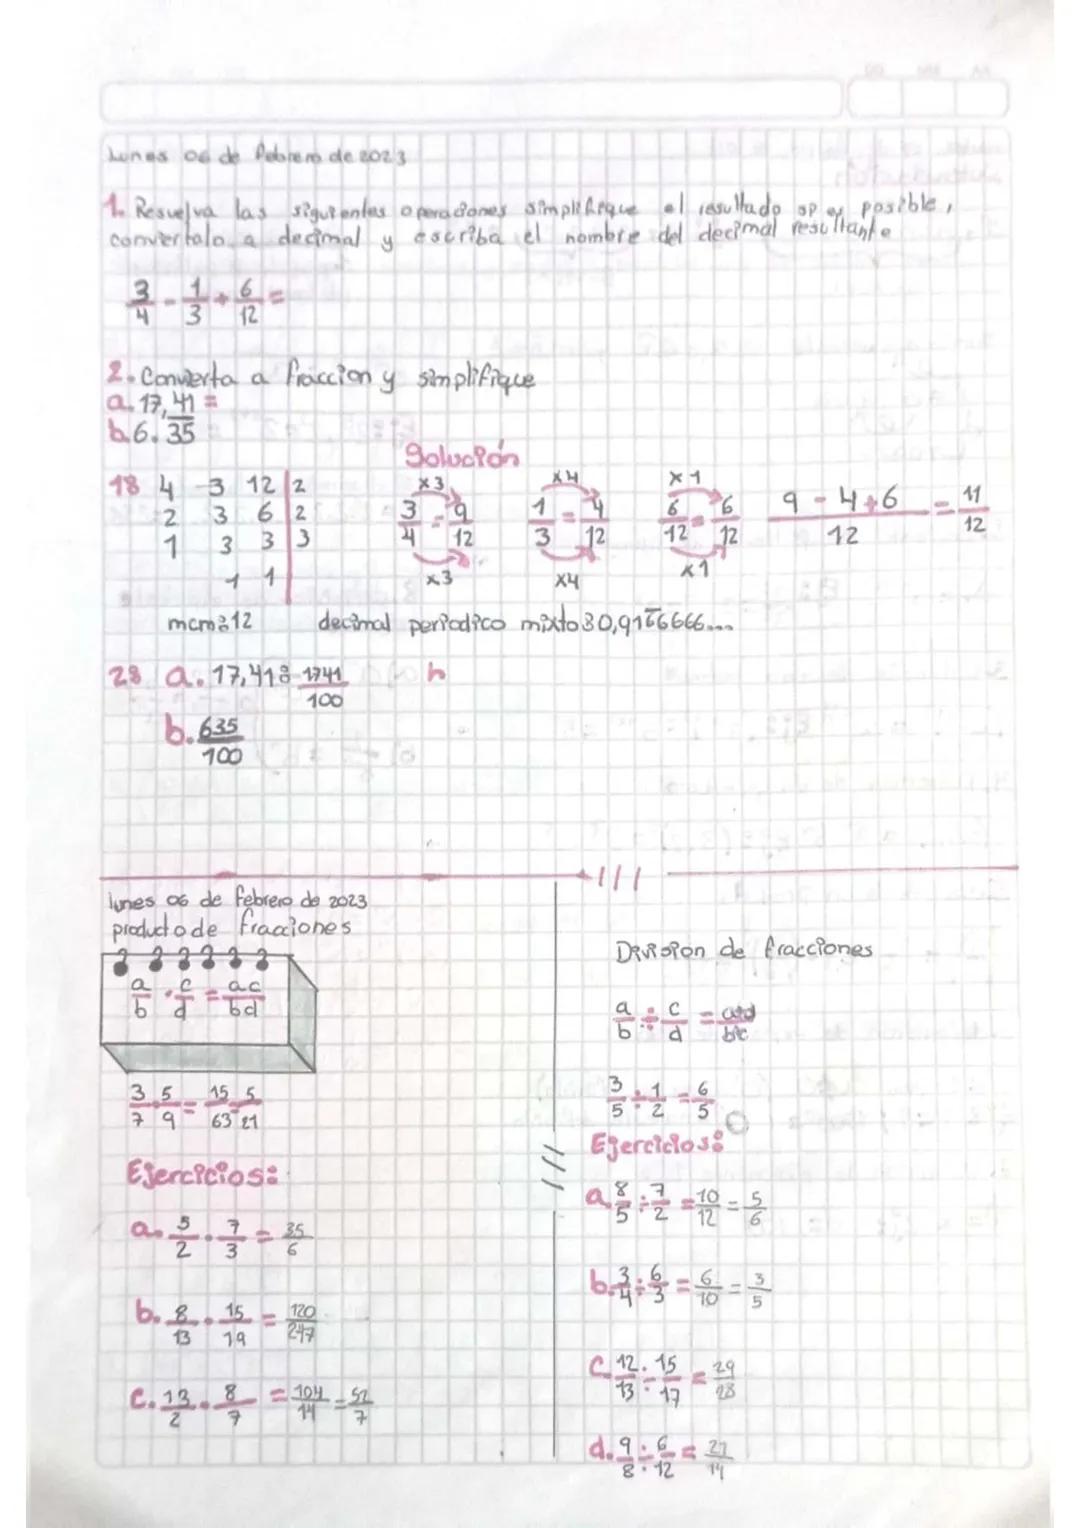 Lunes 06 de febrero de 2023
1. Resuelva las siguientes operaciones simplifique el resultado sp es posible,
conviertalo a decimal y escriba el nombre del decimal resultante
3/4 - 1/3 + 6/12 =
2. Convierta a fraccion y simplifique
a. 17,41 =
b. 6.35
Solución
18 4 3 12 | 2
2 3 6 | 2
1 3 3 | 3
1 1
x3 3/4 = 9/12 x3
x4 1/3 = 4/12 x4
x1 6/12 = 6/12 x1
9 - 4 + 6 / 12 = 11/12
mcm: 12 decimal periodico mixto: 0,9166666...
28 a. 17,41: 1741/100 h
b. 635/100
lunes 06 de febrero de 2023
producto de fracciones
a/b · c/d = ac/bd
3/7 · 5/9 = 15/63 = 5/21
Ejercicios:
a. 5/2 · 7/3 = 35/6
b. 8/13 · 15/19 = 120/247
c. 13/2 · 8/7 = 104/14 = 52/7
///
Division de fracciones
a/b ÷ c/d =
3/5 ÷ 1/2 = 6/5
Ejercicios:
a. 8/5 ÷ 7/2 = 10/12 = 5/6
b. 3/4 ÷ 6/3 = 6/10 = 3/5
c. 12/13 ÷ 15/17 = 29/28
d. 9/8 ÷ 6/12 = 21/14